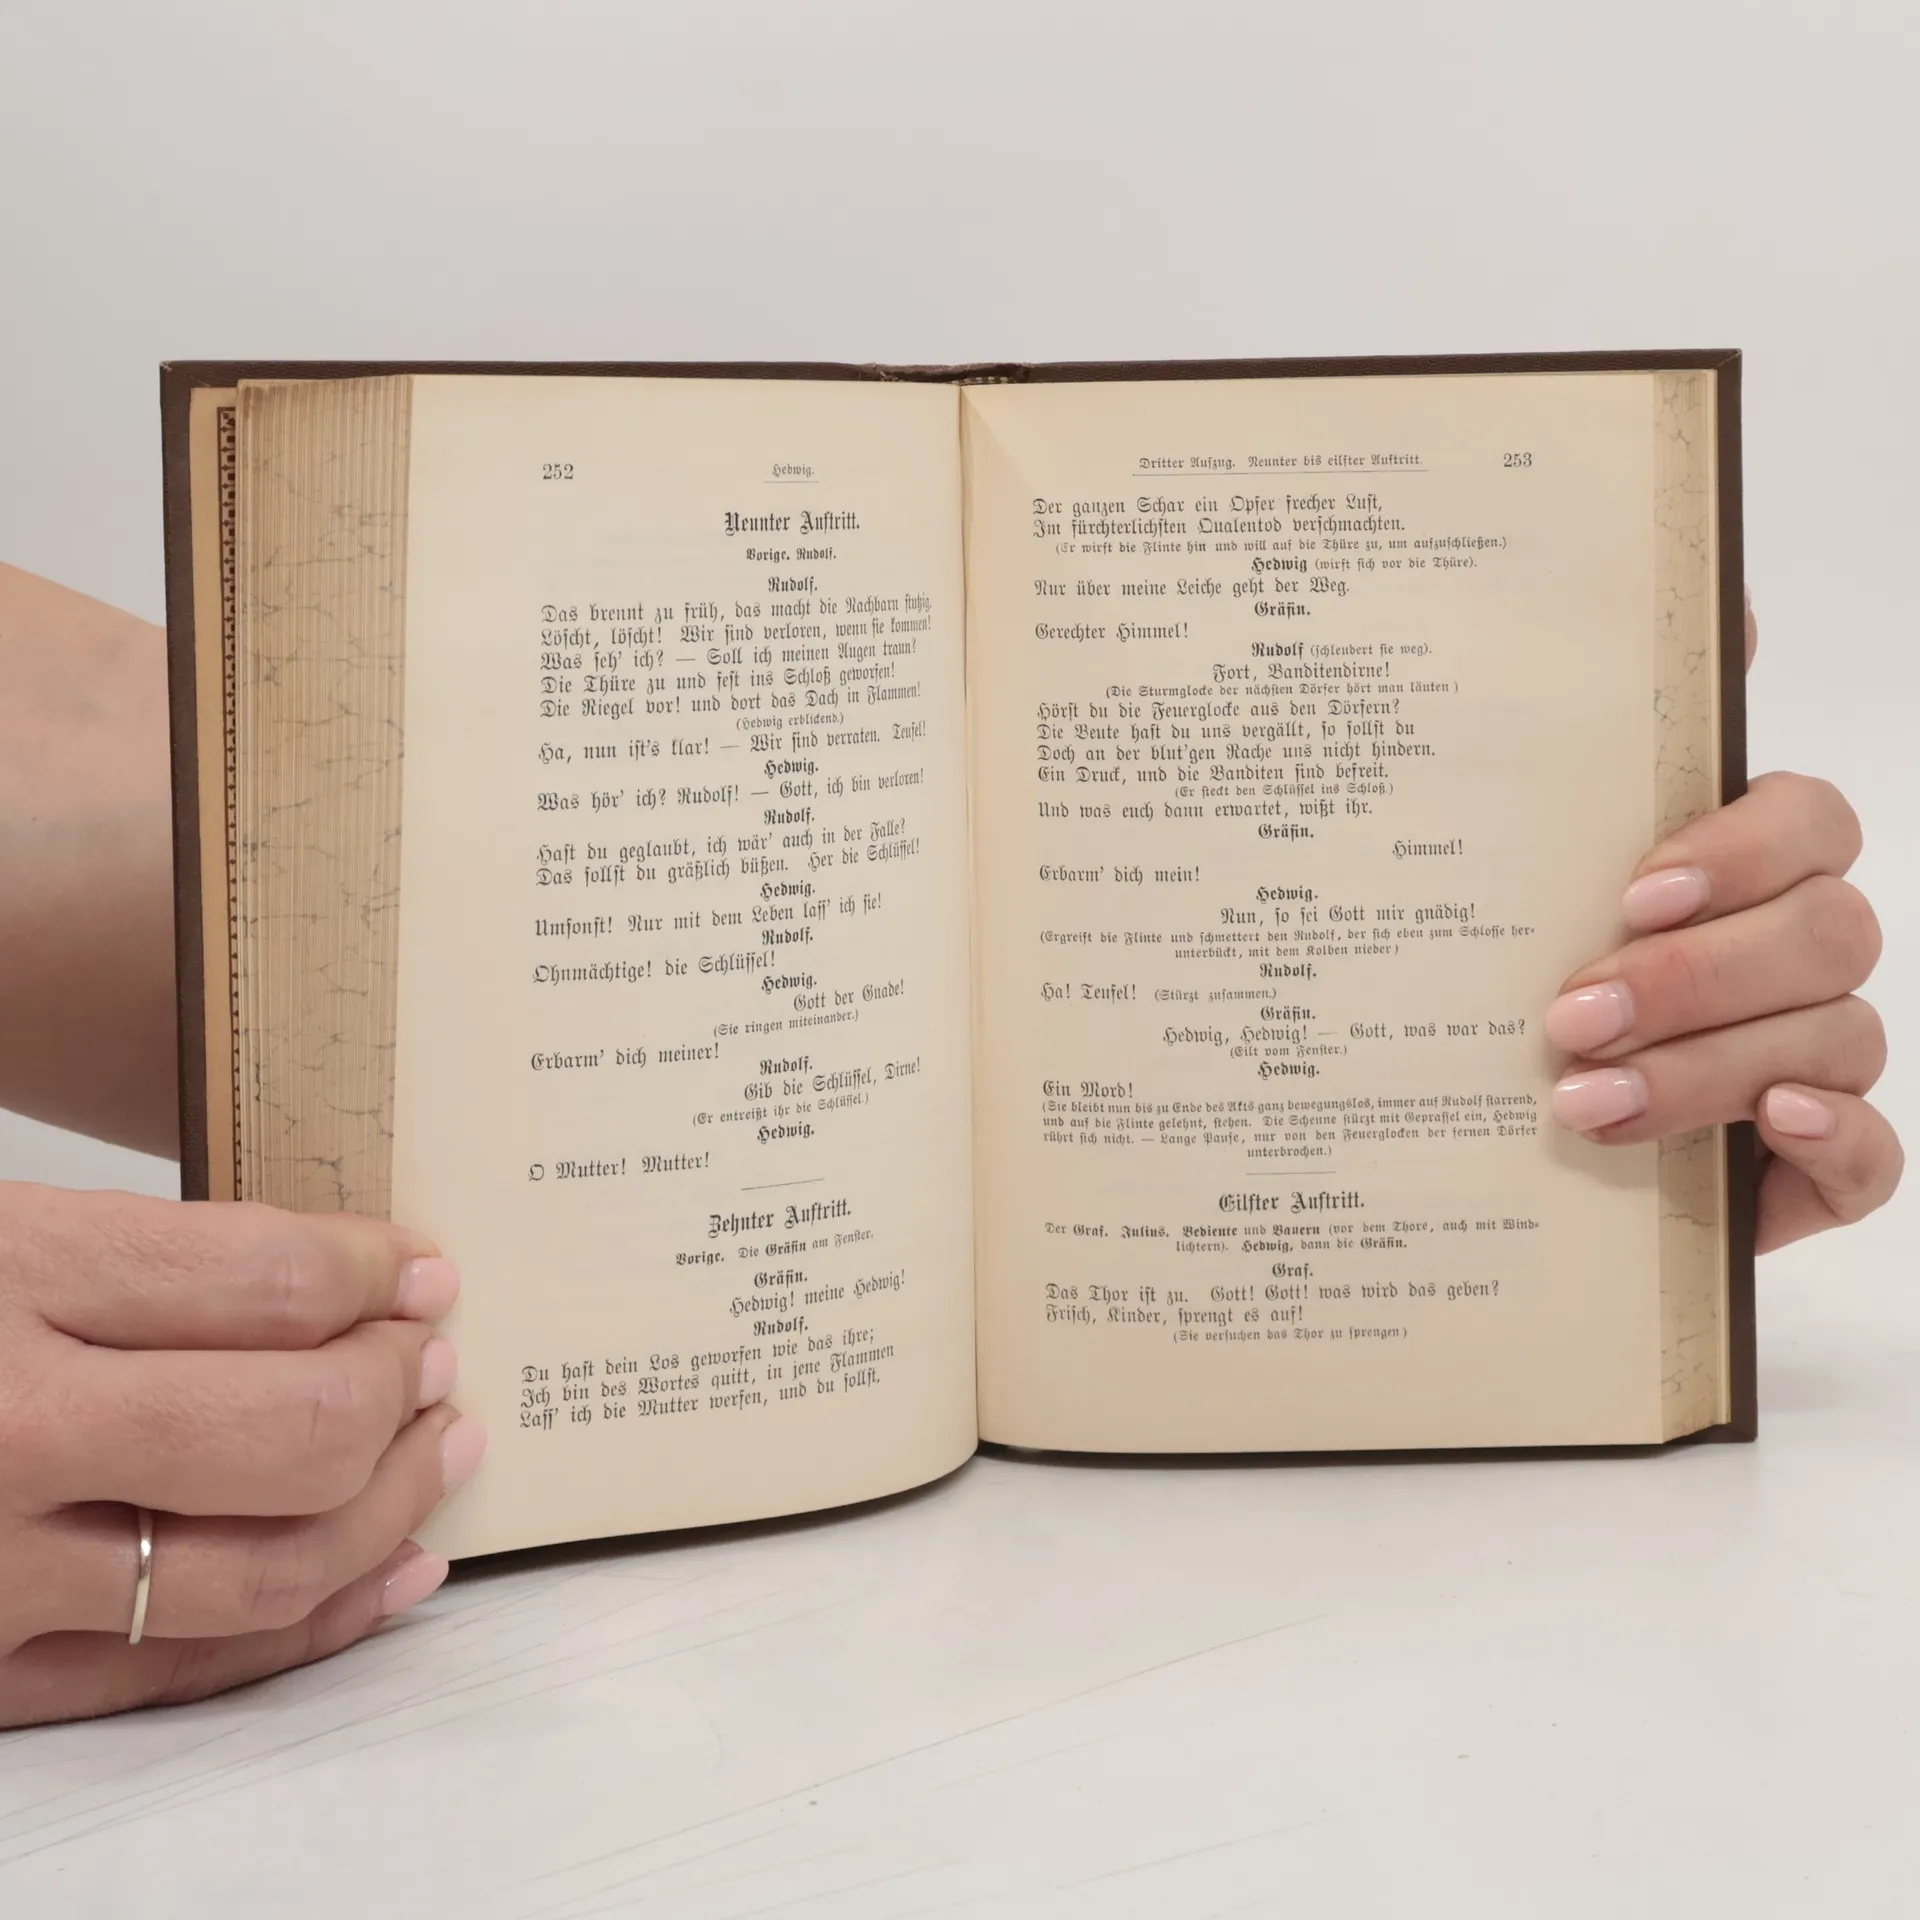 252
Hedwig.
Neunter Auftritt.
Vorige. Rudolf.
Rudolf.
Das brennt zu früh, das macht die Nachbarn stutzig.
Löscht, löscht! Wir sind verloren, wenn sie kommen!
Was seh' ich? — Soll ich meinen Augen traun?
Die Thüre zu und fest ins Schloß geworfen!
Die Riegel vor! und dort das Dach in Flammen!
(Hedwig erblickend.)
Ha, nun ist's klar! — Wir sind verraten. Teufel!
Hedwig.
Was hör' ich? Rudolf! — Gott, ich bin verloren!
Rudolf.
Hast du geglaubt, ich wär' auch in der Falle?
Das sollst du gräßlich büßen. Her die Schlüssel!
Hedwig.
Umsonst! Nur mit dem Leben lass' ich sie!
Rudolf.
Ohnmächtige! die Schlüssel!
Hedwig.
Gott der Gnade!
(Sie ringen miteinander.)
Erbarm' dich meiner!
Rudolf.
Gib die Schlüssel, Dirne!
(Er entreißt ihr die Schlüssel.)
Hedwig.
O Mutter! Mutter!
Zehnter Auftritt.
Vorige. Die Gräfin am Fenster.
Gräfin.
Hedwig! meine Hedwig!
Rudolf.
Du hast dein Los geworfen wie das ihre;
Ich bin des Wortes quitt, in jene Flammen
Lass' ich die Mutter werfen, und du sollst,
Dritter Aufzug. Neunter bis eilfter Auftritt.
253
Der ganzen Schar ein Opfer frecher Lust,
Im fürchterlichsten Qualentod verschmachten.
(Er wirft die Flinte hin und will auf die Thüre zu, um aufzuschließen.)
Hedwig (wirft sich vor die Thüre).
Nur über meine Leiche geht der Weg.
Gräfin.
Gerechter Himmel!
Rudolf (schleudert sie weg).
Fort, Banditendirne!
(Die Sturmglocke der nächsten Dörfer hört man läuten)
Hörst du die Feuerglocke aus den Dörfern?
Die Beute hast du uns vergällt, so sollst du
Doch an der blut'gen Rache uns nicht hindern.
Ein Druck, und die Banditen sind befreit.
(Er steckt den Schlüssel ins Schloß.)
Und was euch dann erwartet, wißt ihr.
Gräfin.
Himmel!
Erbarm' dich mein!
Hedwig.
Nun, so sei Gott mir gnädig!
(Ergreift die Flinte und schmettert den Rudolf, der sich eben zum Schlosse her-
unterbückt, mit dem Kolben nieder)
Rudolf.
Ha! Teufel! (Stürzt zusammen.)
Gräfin.
Hedwig, Hedwig! — Gott, was war das?
(Eilt vom Fenster.)
Hedwig.
Ein Mord!
(Sie bleibt nun bis zu Ende des Akts ganz bewegungslos, immer auf Rudolf starrend,
und auf die Flinte gelehnt, stehen. Die Scheune stürzt mit Geprassel ein, Hedwig
rührt sich nicht. — Lange Pause, nur von den Feuerglocken der fernen Dörfer
unterbrochen.)
Eilfter Auftritt.
Der Graf. Julius. Bediente und Bauern (vor dem Thore, auch mit Wind-
lichtern). Hedwig, dann die Gräfin.
Graf.
Das Thor ist zu. Gott! Gott! was wird das geben?
Frisch, Kinder, sprengt es auf!
(Sie versuchen das Thor zu sprengen)